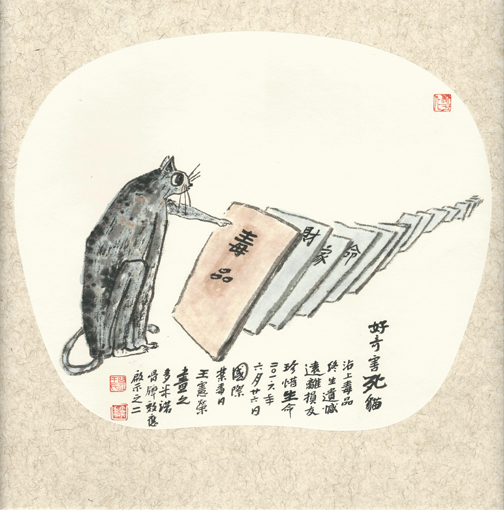 毒品
財
家
命
好奇害死貓
沾上毒品
終生遺憾
遠離損友
珍惜生命
二〇一六年
六月廿六日
國際
禁毒日
王憲榮
畫之
多米諾
骨牌效應
啟示之二